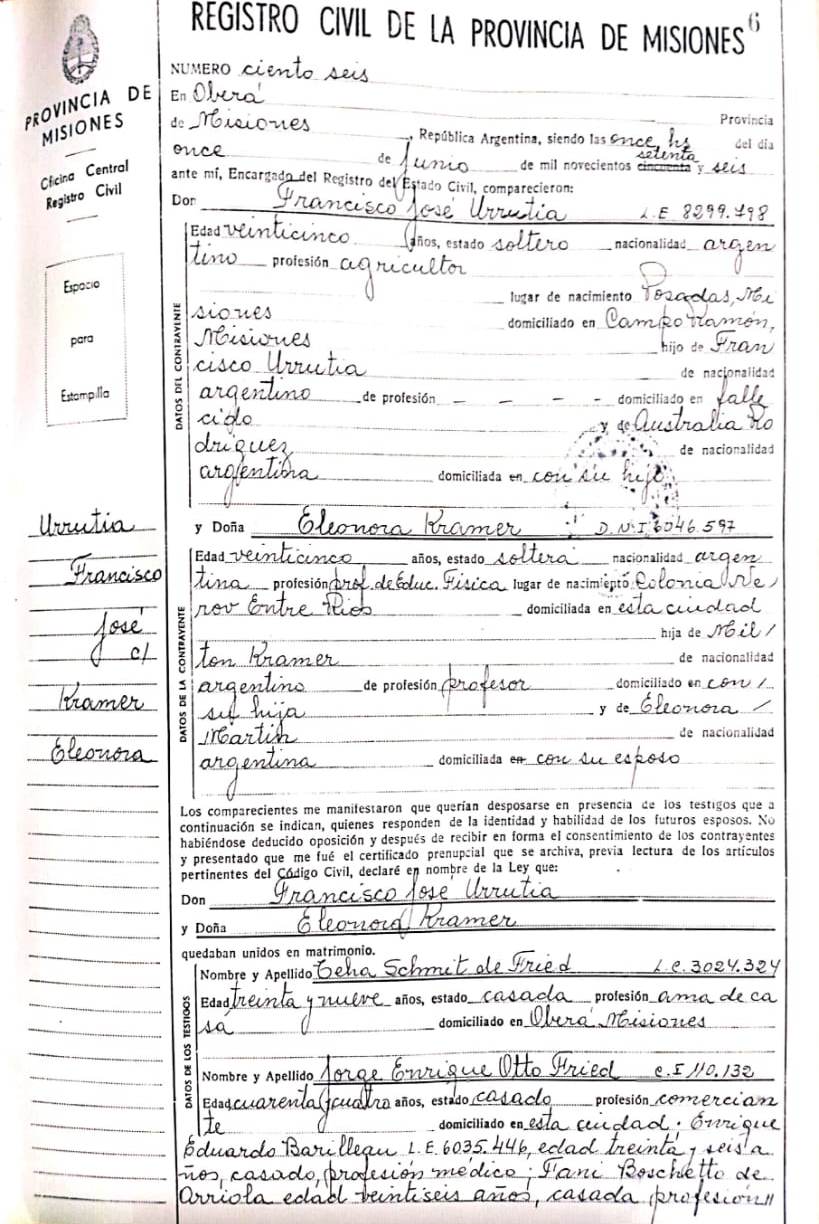 REGISTRO CIVIL DE LA PROVINCIA DE MISIONES 6
PROVINCIA DE
MISIONES
Oficina Central
Registro Civil
Espacio
para
Estampilla
Urrutia
Francisco
José
c/
Kramer
Eleonora
NUMERO ciento seis
En Oberá Provincia
de Misiones, República Argentina, siendo las once hs del día
once de Junio de mil novecientos cincuenta setenta y seis
ante mí, Encargado del Registro del Estado Civil, comparecieron:
Don Francisco José Urrutia L.E 8299.798
DATOS DEL CONTRAYENTE
Edad veinticinco años, estado soltero nacionalidad argen
tino profesión agricultor
lugar de nacimiento Posadas, Mi
siones domiciliado en Campo Ramón,
Misiones hijo de Fran
cisco Urrutia de nacionalidad
argentino de profesión - - - - domiciliado en falle
cido y de Australia Ro
driguez de nacionalidad
argentina domiciliada en con su hijo
y Doña Eleonora Kramer D.N.I 6046.597
DATOS DE LA CONTRAYENTE
Edad veinticinco años, estado soltera nacionalidad argen
tina profesión prof. de Educ. Física lugar de nacimiento Colonia Ne/
rov Entre Rios domiciliada en esta ciudad
hija de Mil/
ton Kramer de nacionalidad
argentino de profesión profesor domiciliado en con /
su hija y de Eleonora /
Martin de nacionalidad
argentina domiciliada en con su esposo
Los comparecientes me manifestaron que querían desposarse en presencia de los testigos que a
continuación se indican, quienes responden de la identidad y habilidad de los futuros esposos. No
habiéndose deducido oposición y después de recibir en forma el consentimiento de los contrayentes
y presentado que me fué el certificado prenupcial que se archiva, previa lectura de los artículos
pertinentes del Código Civil, declaré en nombre de la Ley que:
Don Francisco José Urrutia
y Doña Eleonora Kramer
quedaban unidos en matrimonio.
DATOS DE LOS TESTIGOS
Nombre y Apellido Celia Schmit de Fried L.C. 3024.324
Edad treinta y nueve años, estado casada profesión ama de ca
sa domiciliado en Oberá Misiones
Nombre y Apellido Jorge Enrique Otto Fried C.I 110.132
Edad cuarenta y cuatro años, estado casado profesión comercian
te domiciliado en esta ciudad. Enrique
Eduardo Barilleau L.E. 6035.446, edad treinta y seis a
ños, casado, profesión médico; Fani Boschetto de
Arriola edad veintiseis años, casada profesión //